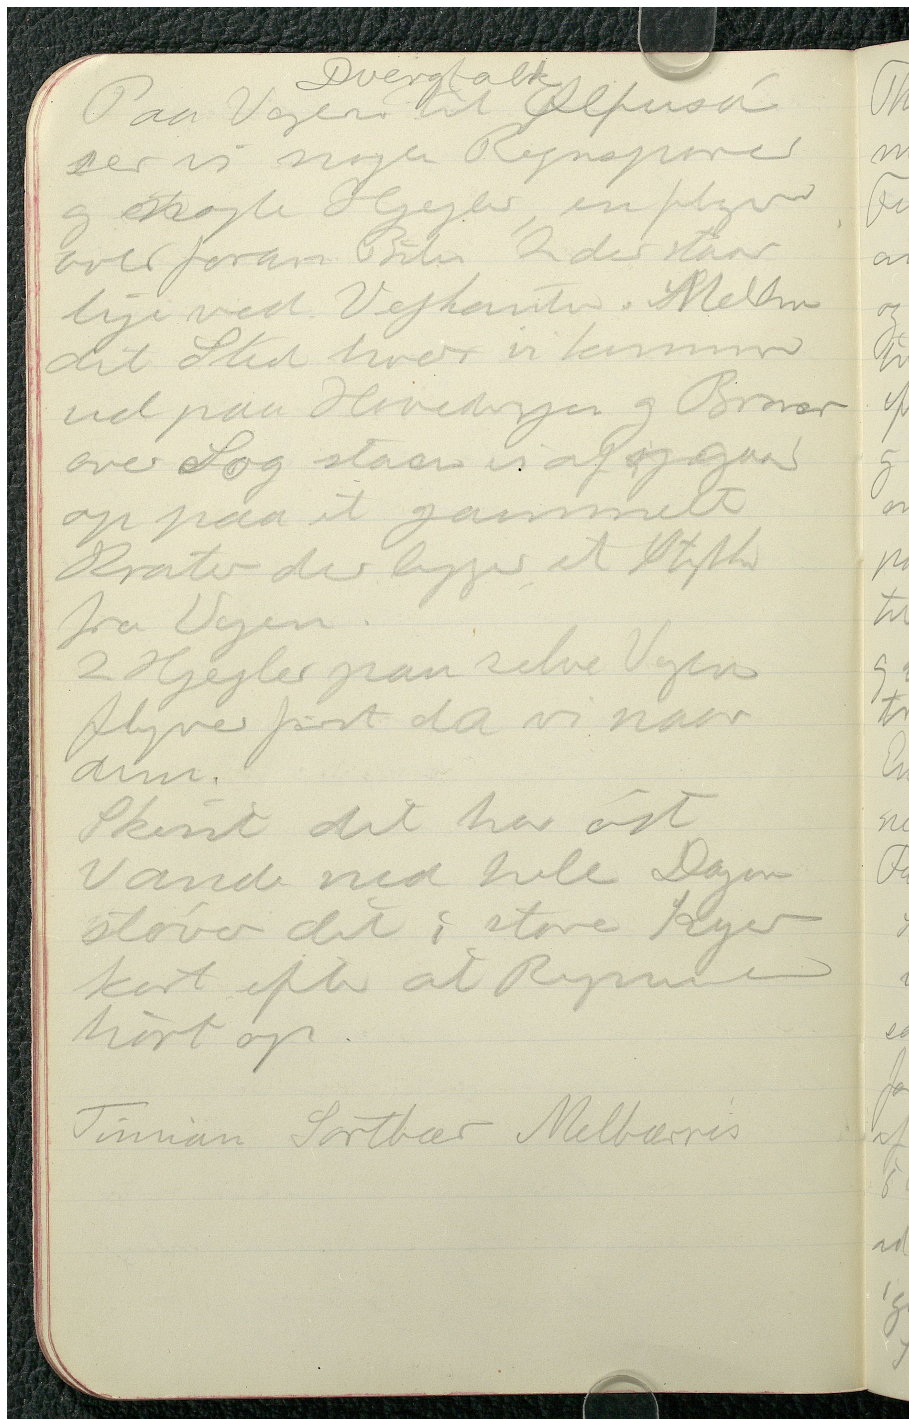 Dvergfalk
Paa Vejen til Ølfusá
ser vi nogen Regnspover
og nogle Hjejler, en flyver
over foran Bilen 2 der staar
lige ved Vejkanten. Mellem
det Sted hvor vi kommer
ud paa Hovedvejen og Broer
over Sog staar vi af og gaar
op paa et gammelt
Krater der ligger et Stykke
fra Vejen.
2 Hjejler paa selve Vejen
flyver først da vi naar
dem.
Skønt det har øst
Vande ned hele Dagen
støver det i store Skyer
kort efter at Regnen
hørt op.
Timian Sortbær Melbærris